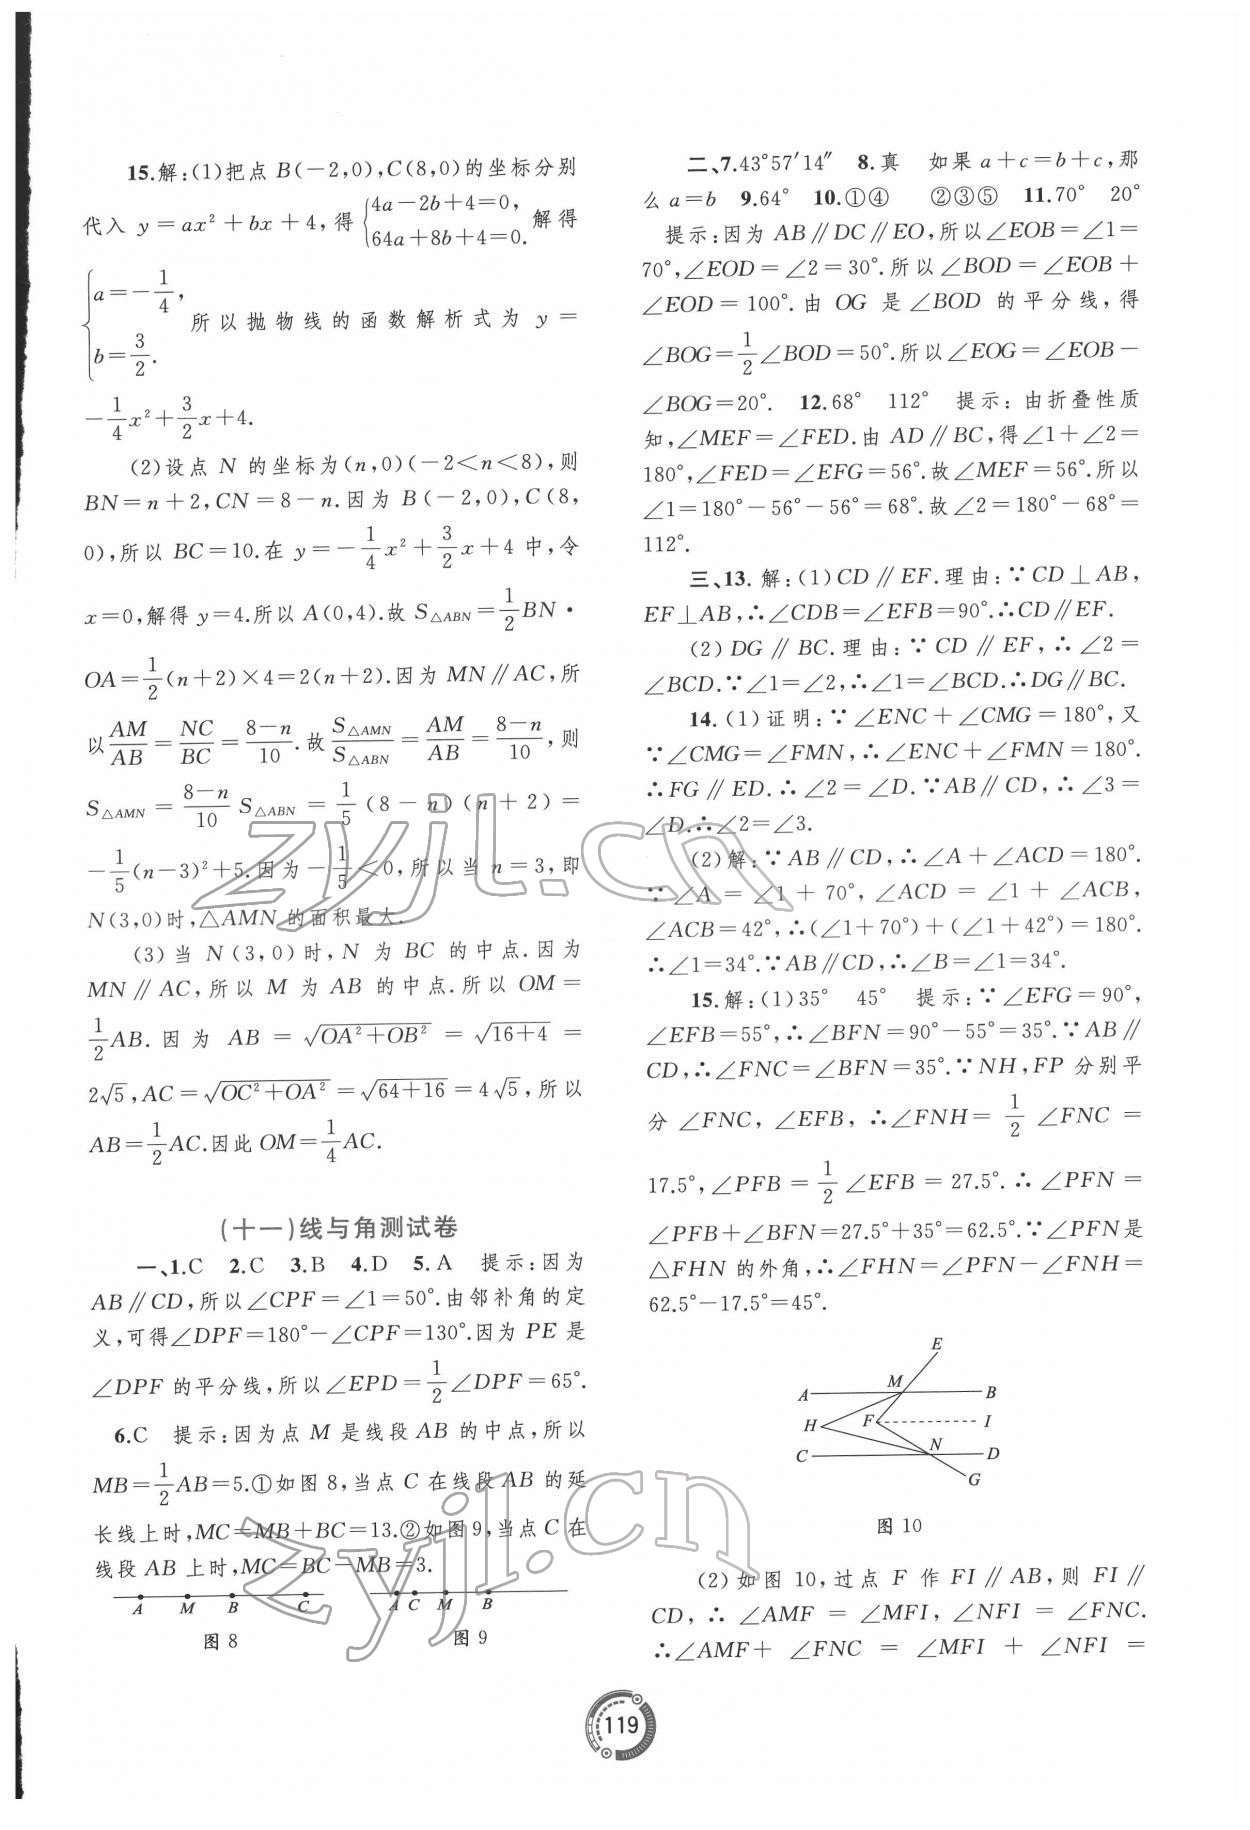 15.解:(1)把点 B(-2,0),C(8,0)的坐标分别
代入 y=ax²+bx+4,得 {4a-2b+4=0, 64a+8b+4=0. 解得
{a=-1/4, b=3/2. 所以抛物线的函数解析式为 y=
-1/4x²+3/2x+4.
(2)设点 N 的坐标为(n,0)(-2<n<8),则
BN=n+2,CN=8-n.因为 B(-2,0),C(8,
0),所以 BC=10.在 y=-1/4x²+3/2x+4 中,令
x=0,解得 y=4.所以 A(0,4).故 S△ABN=1/2BN·
OA=1/2(n+2)×4=2(n+2).因为 MN∥AC,所
以AM/AB=NC/BC=(8-n)/10.故S△AMN/S△ABN=AM/AB=(8-n)/10,则
S△AMN=(8-n)/10 S△ABN=1/5(8-n)(n+2)=
-1/5(n-3)²+5.因为-1/5<0,所以当 n=3,即
N(3,0)时,△AMN的面积最大.
(3)当 N(3,0)时,N 为 BC 的中点.因为
MN∥AC,所以 M 为 AB 的中点.所以 OM=
1/2AB.因为 AB=√(OA²+OB²)=√(16+4)=
2√5,AC=√(OC²+OA²)=√(64+16)=4√5,所以
AB=1/2AC.因此 OM=1/4AC.
(十一)线与角测试卷
一、1.C 2.C 3.B 4.D 5.A 提示:因为
AB∥CD,所以∠CPF=∠1=50°.由邻补角的定
义,可得∠DPF=180°-∠CPF=130°.因为 PE 是
∠DPF 的平分线,所以∠EPD=1/2∠DPF=65°.
6.C 提示:因为点 M 是线段 AB 的中点,所以
MB=1/2AB=5.①如图 8,当点 C 在线段 AB 的延
长线上时,MC=MB+BC=13.②如图 9,当点 C 在
线段 AB 上时,MC=BC-MB=3.
A M B C
图 8
A C M B
图 9
二、7.43°57′14″ 8.真 如果 a+c=b+c,那
么 a=b 9.64° 10.①④ ②③⑤ 11.70° 20°
提示:因为 AB∥DC∥EO,所以∠EOB=∠1=
70°,∠EOD=∠2=30°.所以∠BOD=∠EOB+
∠EOD=100°.由 OG 是∠BOD 的平分线,得
∠BOG=1/2∠BOD=50°.所以∠EOG=∠EOB-
∠BOG=20°. 12.68° 112° 提示:由折叠性质
知,∠MEF=∠FED.由 AD∥BC,得∠1+∠2=
180°,∠FED=∠EFG=56°.故∠MEF=56°.所以
∠1=180°-56°-56°=68°.故∠2=180°-68°=
112°.
三、13.解:(1)CD∥EF.理由:∵CD⊥AB,
EF⊥AB,∴∠CDB=∠EFB=90°.∴CD∥EF.
(2)DG∥BC.理由:∵CD∥EF,∴∠2=
∠BCD.∵∠1=∠2,∴∠1=∠BCD.∴DG∥BC.
14.(1)证明:∵∠ENC+∠CMG=180°,又
∵∠CMG=∠FMN,∴∠ENC+∠FMN=180°.
∴FG∥ED.∴∠2=∠D.∵AB∥CD,∴∠3=
∠D.∴∠2=∠3.
(2)解:∵AB∥CD,∴∠A+∠ACD=180°.
∵∠A=∠1+70°,∠ACD=∠1+∠ACB,
∠ACB=42°,∴(∠1+70°)+(∠1+42°)=180°.
∴∠1=34°.∵AB∥CD,∴∠B=∠1=34°.
15.解:(1)35° 45° 提示:∵∠EFG=90°,
∠EFB=55°,∴∠BFN=90°-55°=35°.∵AB∥
CD,∴∠FNC=∠BFN=35°.∵NH,FP 分别平
分∠FNC,∠EFB,∴∠FNH=1/2∠FNC=
17.5°,∠PFB=1/2∠EFB=27.5°.∴∠PFN=
∠PFB+∠BFN=27.5°+35°=62.5°.∵∠PFN是
△FHN 的外角,∴∠FHN=∠PFN-∠FNH=
62.5°-17.5°=45°.
E
A M B
H F I
C N D
G
图 10
(2)如图 10,过点 F 作 FI∥AB,则 FI∥
CD,∴∠AMF=∠MFI,∠NFI=∠FNC.
∴∠AMF+∠FNC=∠MFI+∠NFI=
119
zyjl.cn
zyjl.cn